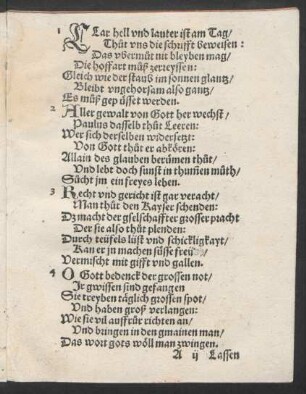 1 CLar hell vnd lauter ist am Tag/
Thůt vns die schrifft beweisen:
Das vbermůt nit bleyben mag/
Die hoffart můß zerreyssen:
Gleich wie der staub im sonnen glantz/
Bleibt vngehorsam also gantz/
Es můß gep üsset werden.
2 Aller gewalt von Gott her wechst/
Paulus dasselb thůt Leeren:
Wer sich derselben widersetzt:
Von Gott thůt er abkören:
Allain des glauben berümen thůt/
Vnd lebt doch sunst in thum̃en můth/
Sücht jm ein freyes leben.
3 Recht vnd gericht ist gar veracht/
Man thůt den Kayser schenden:
Dz macht der gselschaffter grosser pracht
Der sie also thůt plenden:
Durch teüfels list vnd schickligkayt/
Kan er jn machen süsse freüd/
Vermischt mit gifft vnd gallen.
4 O Gott bedenck der grossen not/
Jr gwissen sind gefangen
Sie treyben täglich grossen spot/
Vnd haben groß verlangen:
Wie sie vil auffrůr richten an/
Vnd bringen in den gmainen man/
Das wort gots wöll man zwingen.
A ij Lassen